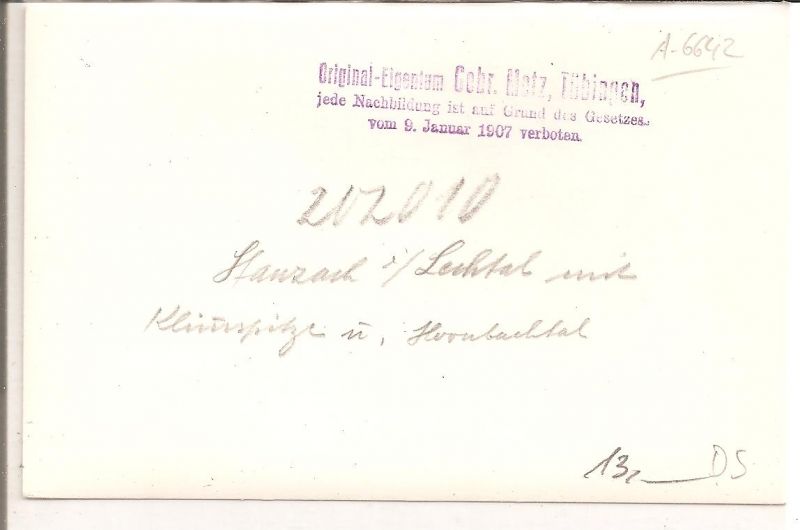 A-6642
Original-Eigentum Gebr. Metz, Tübingen,
jede Nachbildung ist auf Grund des Gesetzes
vom 9. Januar 1907 verboten.
202010
Stanzach i/ Lechtal mit
Klimmspitze u. Hornbachtal
13,— DS